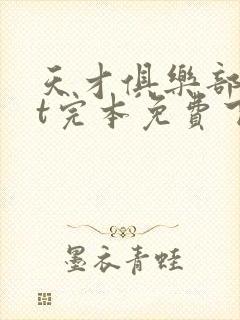 天才俱樂部
t完本免費
墨衣青蛙